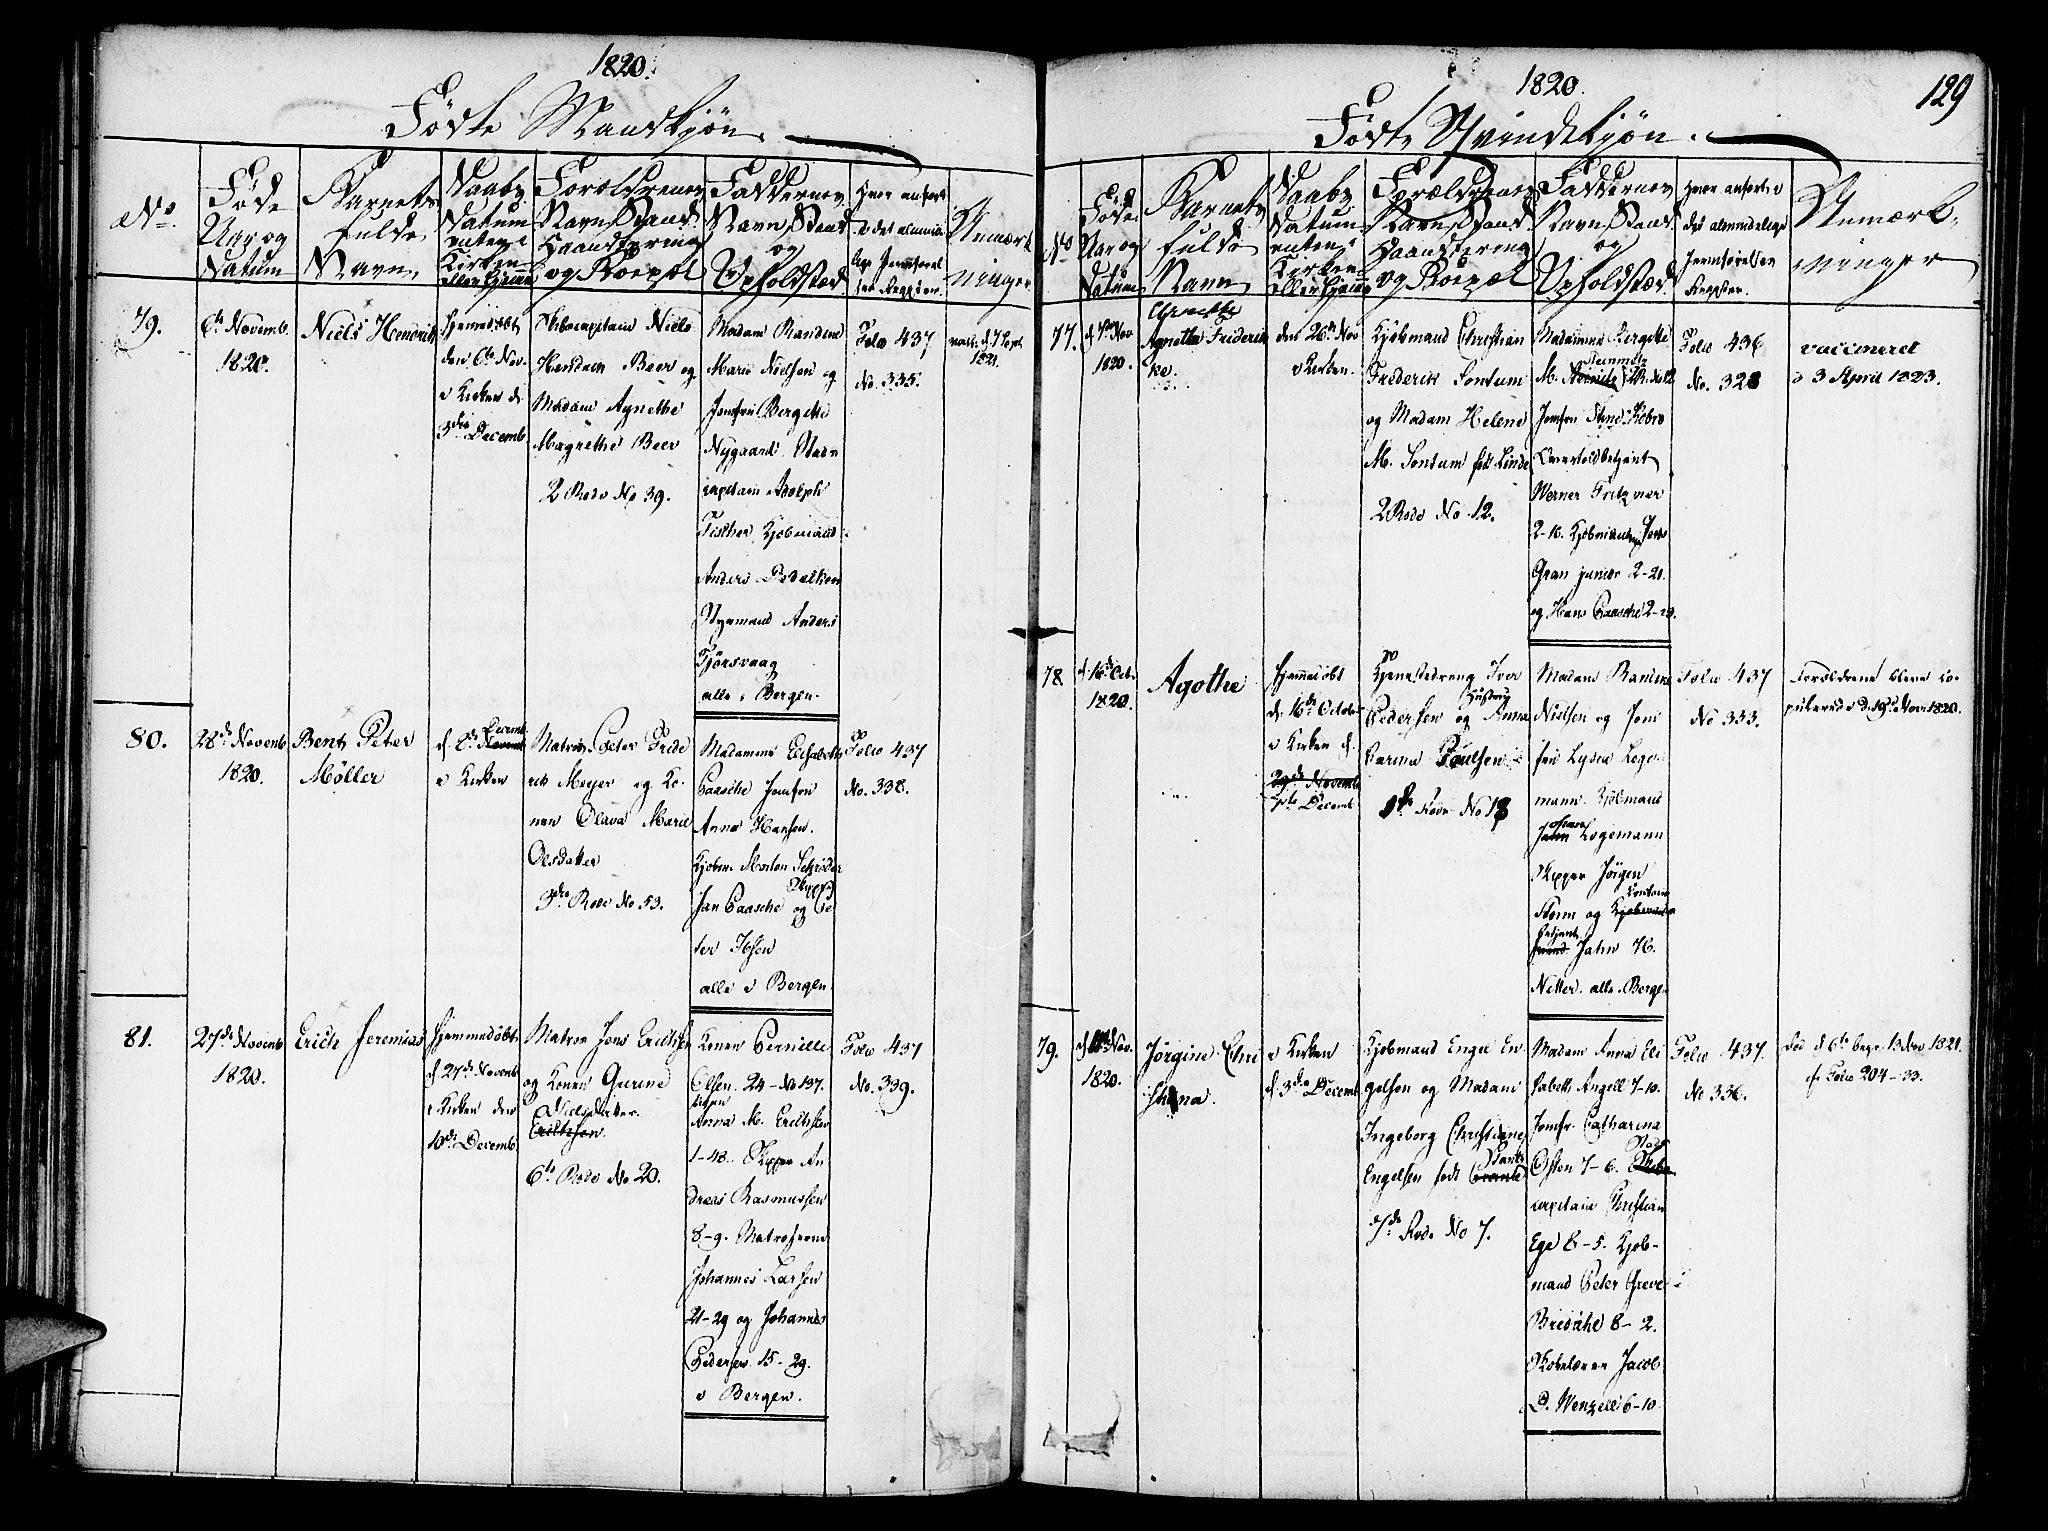 1820.
Fødte Mandkjøn.
No.
Føde
Aar og
Datum
Barnets
fulde
Navn,
Daabs
Datum
enten i
Kirken
eller hjeme
Forældrenes
Navn, Stand
Haandtering
og Boepæl
Faddernes
Navn, Stand
og
Opholdstæd
Hvor anført
i det almin:
Anmærk
ninger
79.
6te Novemb.
1820.
Niels Hendrich
Hjemmedøbt
den 6te Nov.
i Kirken d.
3die Decemb.
Skibscapitain Niels
Hendrich Beer og
Madam Agnethe
Magrethe Beer
2 Rode No 39.
Madam Randine
Marie Nielsen og
Jomfru Bergethe
Nygaard Skibs
capitain Adolph
Fischer, Kjøbmand
Anders
Styrmand Anders
Fjørsvaag
alle i Bergen.
Folio 437
No. 335.
vacc. d. 7 Sept.
1821.
80.
28de Novemb
1820.
Bent Peter
Møller
d. 8de Novemb
Decemb.
i Kirken
Matros Peter Fride
rich Meyer og Ko-
nen Olava Marie
Olsdatter
3die Rode No 53.
Madamme Elisabeth
Paasche Jomfru
Anna Hansen.
Kjøbm. Morten Schrøder
Jan Paasche og Skipper Pe
ter Ibsen
alle i Bergen
Folio 437
No. 338.
81.
27de Novemb
1820.
Erich Jeremias
Hjemmedøbt
d 27de Novemb
i Kirken den
10de Decemb.
Matros Jens Erichsen
og Konen Gurine
Nielsdatter.
Erichsen.
6te Rode No 20.
Konen Pernille
Olsen. 24-No 137.
Anna M. Erichsen
1-48. Skipper An
dreas Rasmussen
8-9. Matroserne
Johannes Larsen
21-29 og Johannes
Pedersen 15-29.
i Bergen.
Folio 437
No. 339.
1820.
129
Fødte Qvindekjøn.
No
Føde
Aar og
Datum
Barnets
fulde
Navn
Daabs
Datum
enten i
Kirken
eller hjeme
Forældrenes
Navn, Stand
Haandtering
og Boepæl
Faddernes
Navn, Stand
og
Opholdstæd
Hvor anført i
det almindelige
Jevnførelses
Register.
Anmærk-
ninger
77.
d 7de Nov
1820.
Agnethe Friderik
ke.
den 26de Nov
i Kirken.
Kjøbmand Christian
Frederik Sontum
og Madam Helene
M. Sontum født Linde
2 Rode No 12.
Madamme Bergitte
M. Steinmetz
Jomfru
Overtoldbetjent
Werner Fritzner
2-16. Kjøbmændene Jens
Gran junior 2-21.
og Hans Paasche 2-29.
Folio 436
No. 328
vaccineret
d 3 April 1823.
78
d 16de Octb.
1820.
Agothe
Hjemmedøbt
d. 16de Octobr
i Kirken d.
29de Novemb
7de Decemb
Tjenestedreng Iver
Pedersen og Hustru Anna
Carina Poulsen
1te Rode No 18
Madam Randine
Nielsen og Jom
fru Lydia Loge-
mann. Kjøbmand
Johan Logemann
Skipper Jørgen
Storm og Contoir
Betjent Jahn H.
Netter. alle i Bergen
Folio 437
No 333.
Forældrene bleve co-
pulerede d. 19de Nov. 1820.
79.
d Nov.
1820.
Jørgine Chri
stiana.
i Kirken
d. 3die Decemb
Kjøbmand Engel En
gelsen og Madam
Ingeborg Christiane
Engelsen født
7de Rode No 7.
Madam Anna Eli
sabeth Angell 7-10.
Jomfr. Catharina
Olsen 7-6. Stads
capitain Christian
Ege 8-5. Kjøb-
mand Peter Greve
Bredahl 8-2.
Skolelærer Jacob
D. Wenzell 6-10
Folio 437.
No 336.
død d 6te begr. 13 Nov 1821.
cfr Folio 204-33.